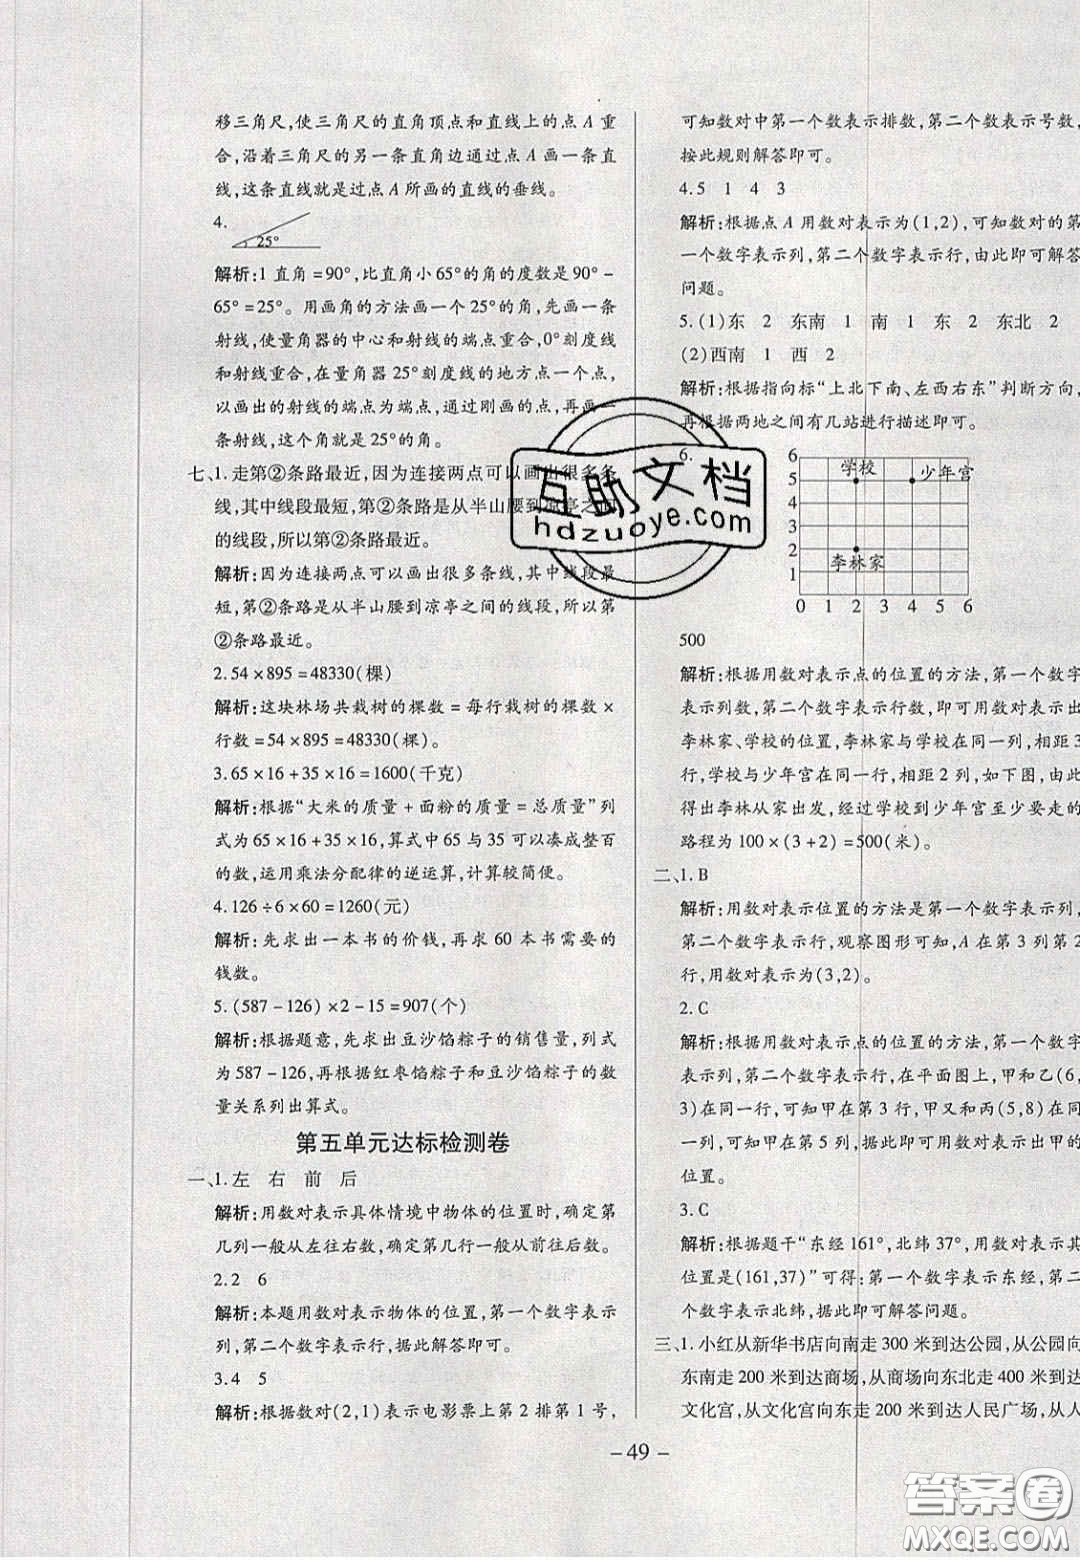 移三角尺,使三角尺的直角顶点和直线上的点 A 重
合,沿着三角尺的另一条直角边通过点 A 画一条直
线,这条直线就是过点 A 所画的直线的垂线。
4.
25°
解析:1 直角=90°,比直角小 65°的角的度数是 90°-
65°=25°。用画角的方法画一个 25°的角,先画一条
射线,使量角器的中心和射线的端点重合,0°刻度线
和射线重合,在量角器 25°刻度线的地方点一个点,
以画出的射线的端点为端点,通过刚画的点,再画一
条射线,这个角就是 25°的角。
七、1. 走第②条路最近,因为连接两点可以画出很多条
线,其中线段最短,第②条路是从半山腰到凉亭之间
的线段,所以第②条路最近。
解析:因为连接两点可以画出很多条线,其中线段最
短,第②条路是从半山腰到凉亭之间的线段,所以第
②条路最近。
2.54×895=48330(棵)
解析:这块林场共栽树的棵数=每行栽树的棵数×
行数=54×895=48330(棵)。
3.65×16+35×16=1600(千克)
解析:根据“大米的质量+面粉的质量=总质量”列
式为 65×16+35×16,算式中 65 与 35 可以凑成整百
的数,运用乘法分配律的逆运算,计算较简便。
4.126÷6×60=1260(元)
解析:先求出一本书的价钱,再求 60 本书需要的
钱数。
5.(587-126)×2-15=907(个)
解析:根据题意,先求出豆沙馅粽子的销售量,列式
为 587-126,再根据红枣馅粽子和豆沙馅粽子的数
量关系列出算式。
第五单元达标检测卷
一、1. 左 右 前 后
解析:用数对表示具体情境中物体的位置时,确定第
几列一般从左往右数,确定第几行一般从前往后数。
2.2 6
解析:本题用数对表示物体的位置,第一个数字表示
列,第二个数字表示行,据此解答即可。
3.4 5
解析:根据数对(2,1)表示电影票上第 2 排第 1 号,
可知数对中第一个数表示排数,第二个数表示号数,
按此规则解答即可。
4.5 1 4 3
解析:根据点 A 用数对表示为(1,2),可知数对的第
一个数字表示列,第二个数字表示行,由此即可解答
问题。
5.(1)东 2 东南 1 南 1 东 2 东北 2
(2)西南 1 西 2
解析:根据指向标“上北下南、左西右东”判断方向,
再根据两地之间有几站进行描述即可。
6.
6
5
4
3
2
1
学校
少年宫
李林家
0 1 2 3 4 5 6
500
解析:根据用数对表示点的位置的方法,第一个数字
表示列数,第二个数字表示行数,即可用数对表示出
李林家、学校的位置,李林家与学校在同一列,相距 3
行,学校与少年宫在同一行,相距 2 列,如下图,由此
得出李林从家出发,经过学校到少年宫至少要走的
路程为 100×(3+2)=500(米)。
二、1. B
解析:用数对表示位置的方法是第一个数字表示列,
第二个数字表示行,观察图形可知,A 在第 3 列第 2
行,用数对表示为(3,2)。
2. C
解析:根据用数对表示点的位置的方法,第一个数字
表示列,第二个数字表示行,在平面图上,甲和乙(6,
3)在同一行,可知甲在第 3 行,甲又和丙(5,8)在同
一列,可知甲在第 5 列,据此即可用数对表示出甲的
位置。
3. C
解析:根据题干“东经 161°,北纬 37°,用数对表示的
位置是(161,37)”可得:第一个数字表示东经,第二
个数字表示北纬,据此即可解答问题。
三、1. 小红从新华书店向南走 300 米到达公园,从公园向
东南走 200 米到达商场,从商场向东北走 400 米到达
文化宫,从文化宫向东走 200 米到达人民广场,从人
- 49 -
互助文档
hdzuoye.com
答案圈
MXQE.COM